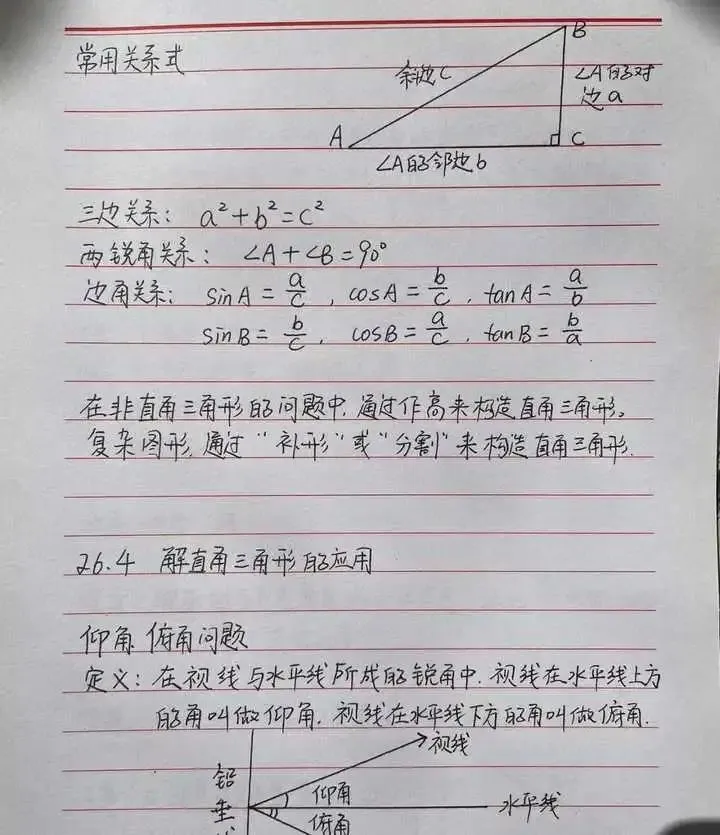 常用关系式
B
斜边c
∠A的对
边a
A
C
∠A的邻边b
三边关系: a²+b²=c²
两锐角关系: ∠A+∠B=90°
边角关系: sinA=a/c, cosA=b/c, tanA=a/b
sinB=b/c, cosB=a/c, tanB=b/a
在非直角三角形的问题中,通过作高来构造直角三角形。
复杂图形,通过“补形”或“分割”来构造直角三角形.
26.4 解直角三角形的应用
仰角、俯角问题
定义:在视线与水平线所成的锐角中.视线在水平线上方
的角叫做仰角.视线在水平线下方的角叫做俯角.
视线
铅
垂
仰角
水平线
俯角